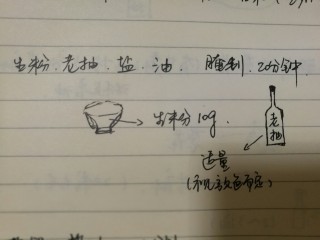 生粉、老抽、盐、油、腌制、20分钟
生粉10g.
老抽
适量